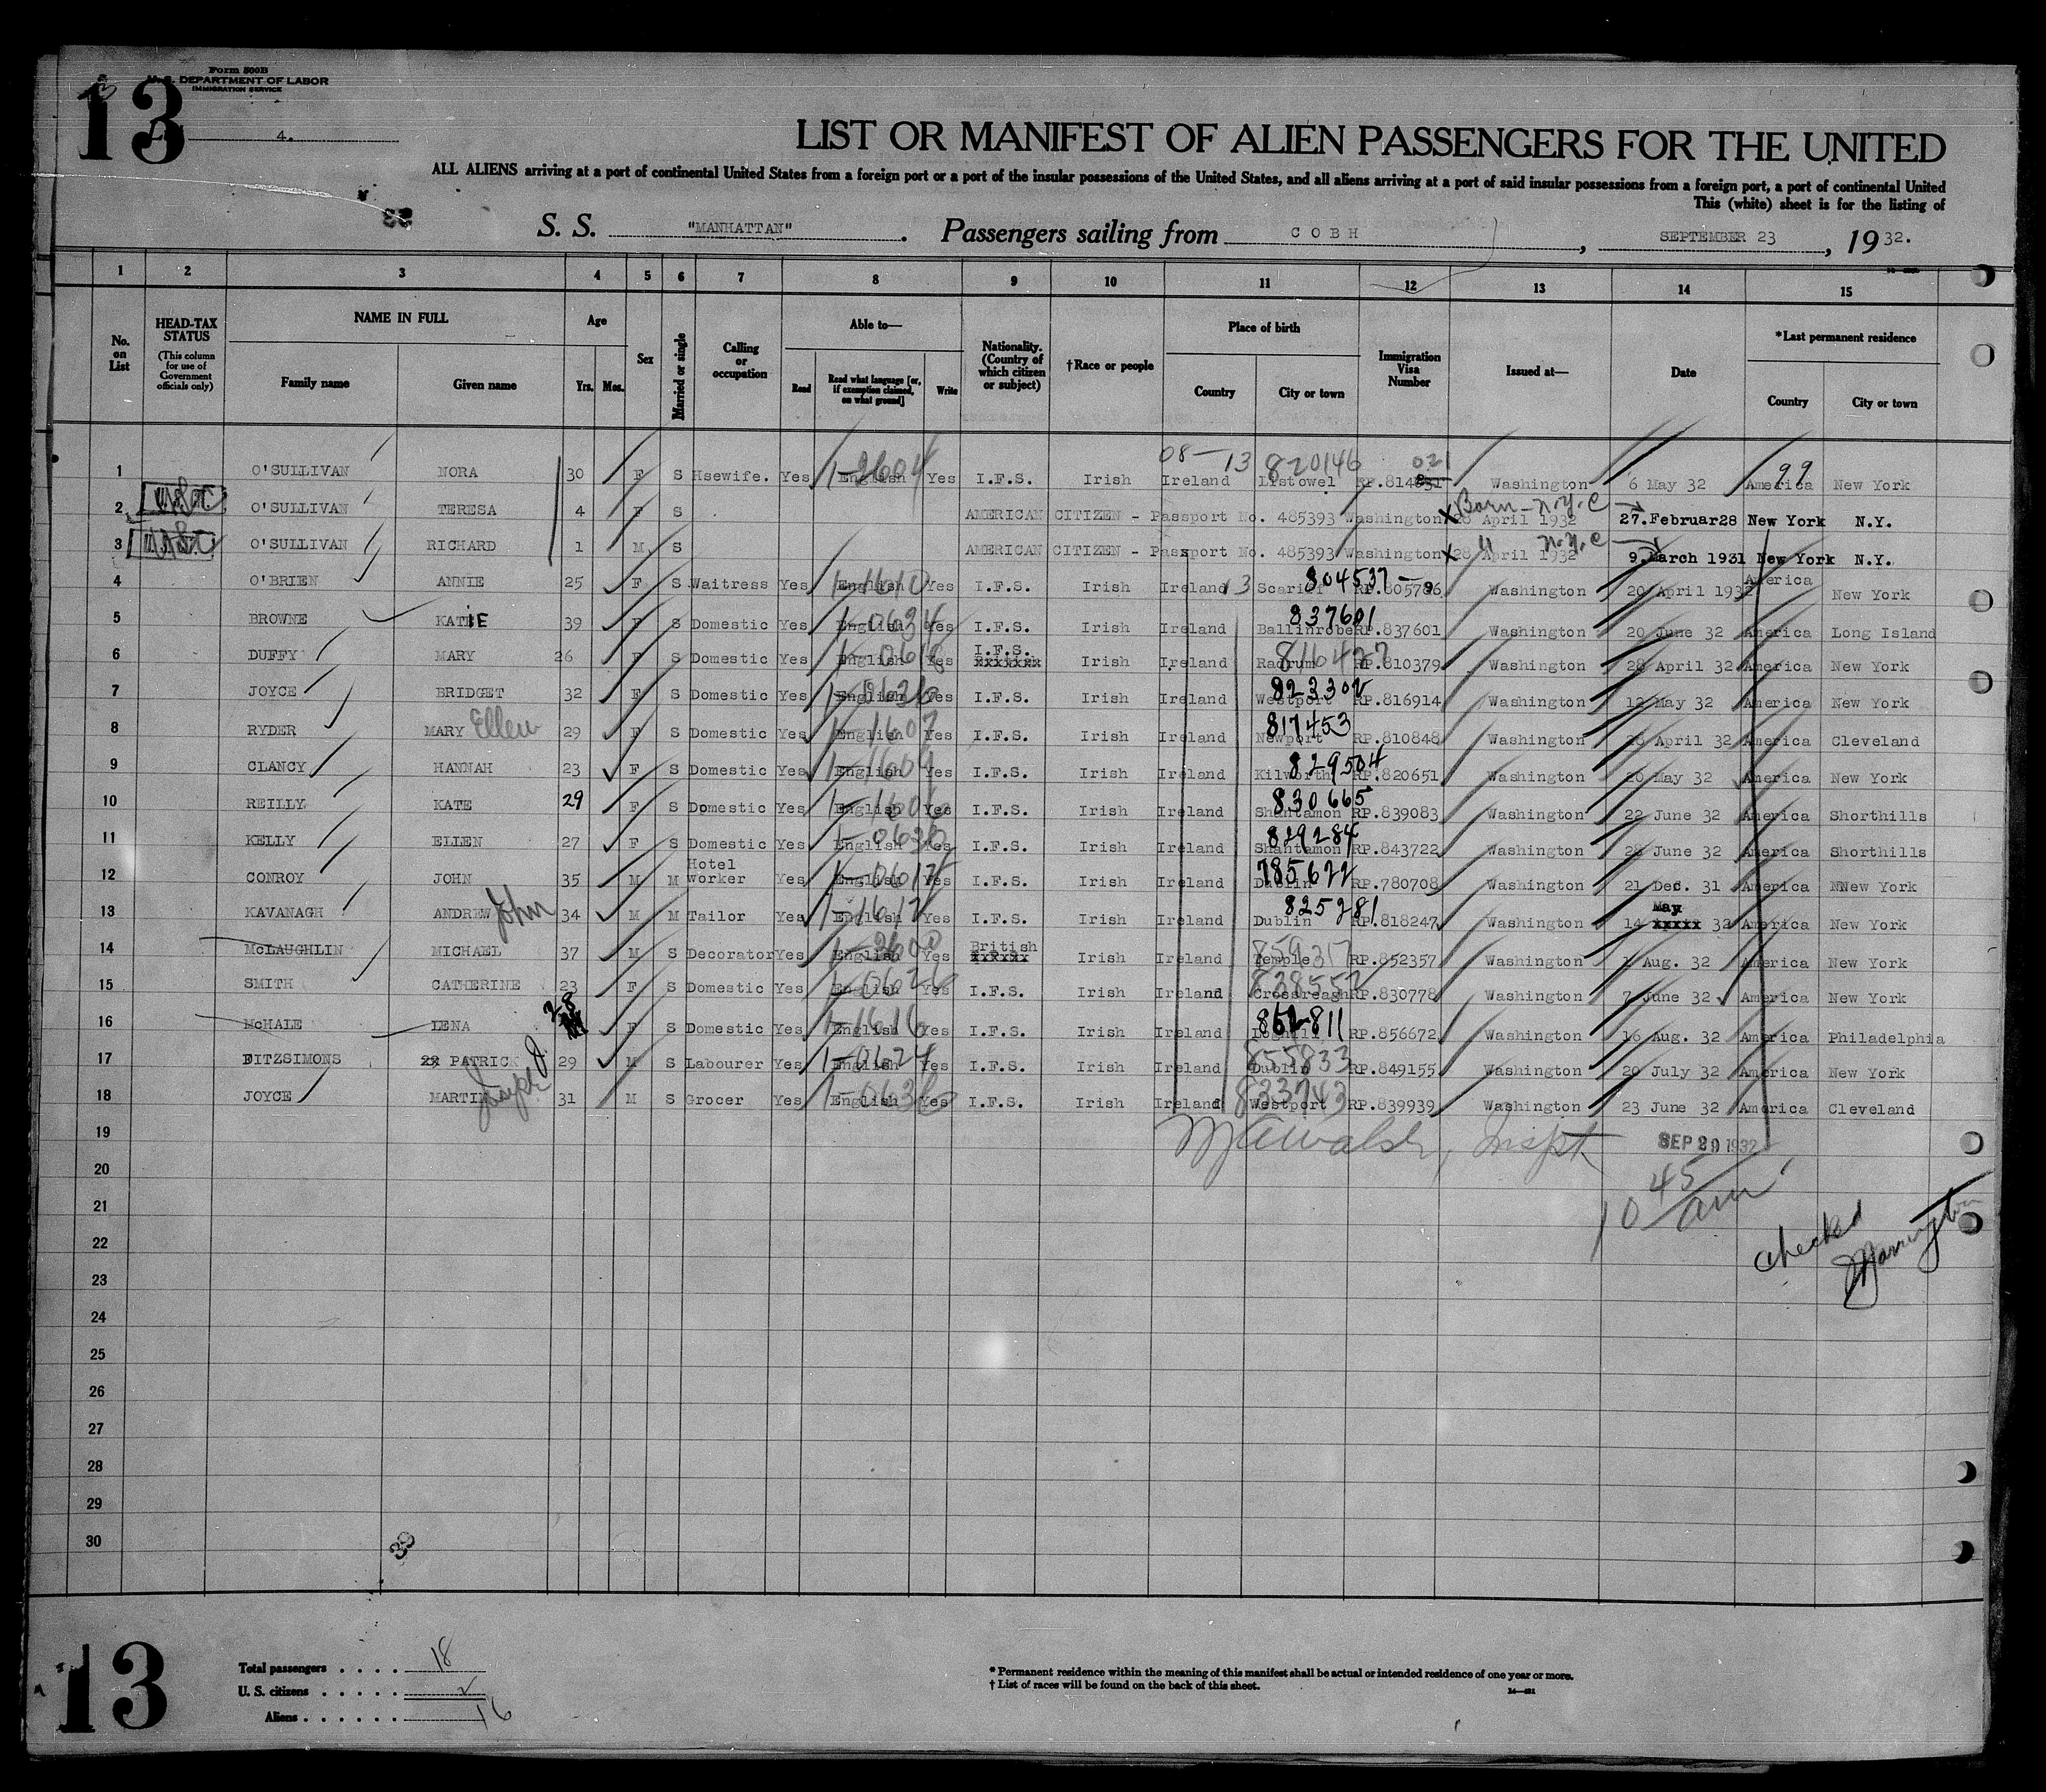 Form 500B
U. S. DEPARTMENT OF LABOR
IMMIGRATION SERVICE
13
4.
LIST OR MANIFEST OF ALIEN PASSENGERS FOR THE UNITED
ALL ALIENS arriving at a port of continental United States from a foreign port or a port of the insular possessions of the United States, and all aliens arriving at a port of said insular possessions from a foreign port, a port of continental United
This (white) sheet is for the listing of
S. S. "MANHATTAN". Passengers sailing from COBH, SEPTEMBER 23, 1932.
1 2 3 4 5 6 7 8 9 10 11 12 13 14 15
No. on List
HEAD-TAX STATUS
(This column for use of Government officials only)
NAME IN FULL
Family name Given name
Age
Yrs. Mos.
Sex
Married or single
Calling or occupation
Able to—
Read Read what language [or, if exemption claimed, on what ground] Write
Nationality. (Country of which citizen or subject)
†Race or people
Place of birth
Country City or town
Immigration Visa Number
Issued at—
Date
*Last permanent residence
Country City or town
08—13 820146 021 99
1 O'SULLIVAN NORA 30 F S Hsewife. Yes 1-2604 English Yes I.F.S. Irish Ireland Listowel Washington 6 May 32 America New York
Born - N.Y.C
2 O'SULLIVAN TERESA 4 F S AMERICAN CITIZEN - Passport No. 485393 Washington 28 April 1932 27.Februar28 New York N.Y.
" N.Y.C
3 O'SULLIVAN RICHARD 1 M S AMERICAN CITIZEN - Passport No. 485393 Washington 28 April 1932 9.March 1931 New York N.Y.
4 O'BRIEN ANNIE 25 F S Waitress Yes 1-1610 English Yes I.F.S. Irish Ireland 804537 RP.805786 Washington 20 April 1932 America New York
5 BROWNE KATIE 39 F S Domestic Yes English Yes I.F.S. Irish Ireland 837601 Ballinrobe RP.837601 Washington 20 June 32 America Long Island
6 DUFFY MARY 26 F S Domestic Yes English Yes I.F.S. xxxxxxx Irish Ireland RP.810379 Washington 28 April 32 America New York
7 JOYCE BRIDGET 32 F S Domestic Yes English Yes I.F.S. Irish Ireland 823302 Westport RP.816914 Washington 12 May 32 America New York
8 RYDER MARY Ellen 29 F S Domestic Yes 1-1607 English Yes I.F.S. Irish Ireland 817453 Newport RP.810848 Washington April 32 America Cleveland
9 CLANCY HANNAH 23 F S Domestic Yes 1-1604 English Yes I.F.S. Irish Ireland 829504 Kilworth RP.820651 Washington 20 May 32 America New York
10 REILLY KATE 29 F S Domestic Yes English Yes I.F.S. Irish Ireland 830665 Shantamon RP.839083 Washington 22 June 32 America Shorthills
11 KELLY ELLEN 27 F S Domestic Yes English Yes I.F.S. Irish Ireland 829284 Shantamon RP.843722 Washington 28 June 32 America Shorthills
12 CONROY JOHN 35 M M Hotel worker Yes 1-0617 English Yes I.F.S. Irish Ireland 785622 Dublin RP.780708 Washington 21 Dec. 31 America NNew York
13 KAVANAGH ANDREW John 34 M M Tailor Yes 1-1617 English Yes I.F.S. Irish Ireland 825281 Dublin RP.818247 Washington 14 May xxxxx 32 America New York
14 McLAUGHLIN MICHAEL 37 M S Decorator Yes 1-2600 English Yes British xxxxxx Irish Ireland 859317 Temple RP.852357 Washington 1 Aug. 32 America New York
15 SMITH CATHERINE 23 F S Domestic Yes English Yes I.F.S. Irish Ireland 838552 Crossreagh RP.830778 Washington 7 June 32 America New York
16 McHALE LENA 28 F S Domestic Yes 1-1616 English Yes I.F.S. Irish Ireland 862811 RP.856672 Washington 16 Aug. 32 America Philadelphia
17 FITZSIMONS PATRICK Joseph 29 M S Labourer Yes 1-0627 English Yes I.F.S. Irish Ireland 855833 Dublin RP.849155 Washington 20 July 32 America New York
18 JOYCE MARTIN 31 M S Grocer Yes English Yes I.F.S. Irish Ireland 833743 Westport RP.839939 Washington 23 June 32 America Cleveland
19
Walsh, Inspt. SEP 29 1932
20
10 45 am
21
checked
22
23
24
25
26
27
28
29
30
39
13
Total passengers .... 18
U. S. citizens ..... 2
Aliens ...... 16
* Permanent residence within the meaning of this manifest shall be actual or intended residence of one year or more.
† List of races will be found on the back of this sheet.